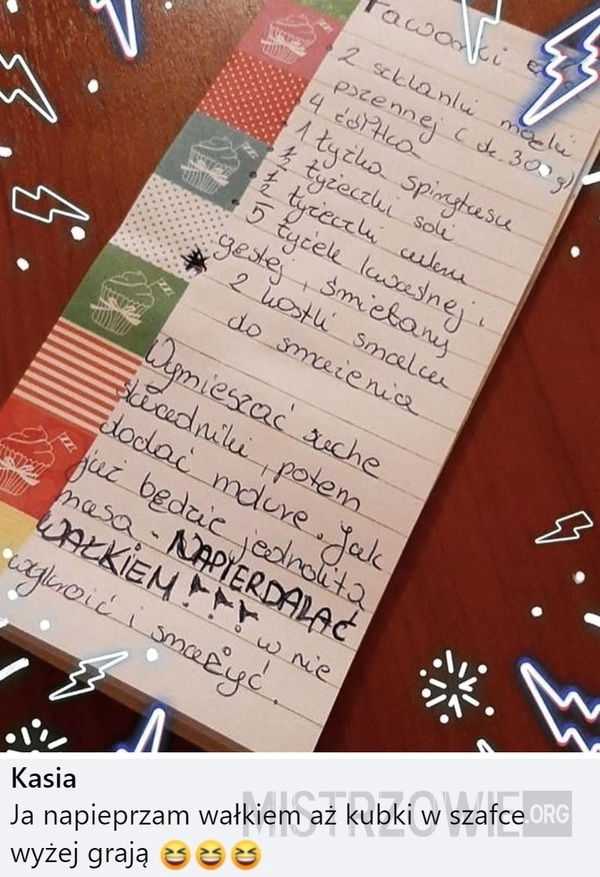 Faworki
2 szklanki mąki
pszennej (ok. 300 g)
4 żółtka
1 łyżka spirytusu
½ łyżeczki soli
½ łyżeczki cukru
5 łyżek kwaśnej i
gęstej, śmietany
* 2 kostki smalcu
do smażenia
Wymieszać suche
składniki, potem
dodać mokre. Jak
już będzie jednolita
masa - NAPIERDALAĆ
WAŁKIEM!!! w nie
wykroić i smażyć.
Kasia
Ja napieprzam wałkiem aż kubki w szafce
wyżej grają 😆😆😆
MISTRZOWIE.ORG